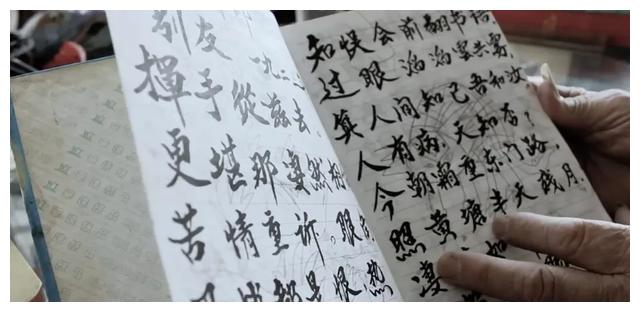 别友 一九二
揮手從兹去。
更堪那凄然相
苦情重诉。眼
都是恨,热
知悮会前翻书语。
过眼滔滔雲共雾,
算人间知己吾和汝。
人有病,天知否?
今朝霜重东门路,
照横塘半天残月,
凄 如